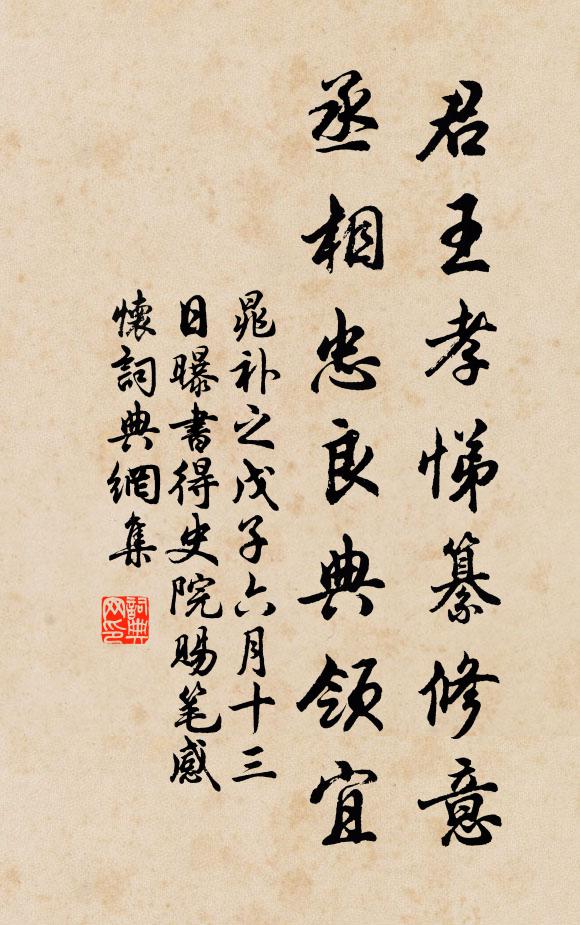 君王孝悌纂修意
丞相忠良典領宜
晁补之戊子六月十三
日曝書得史院賜笔感
懷詞典網集
詞典
网印